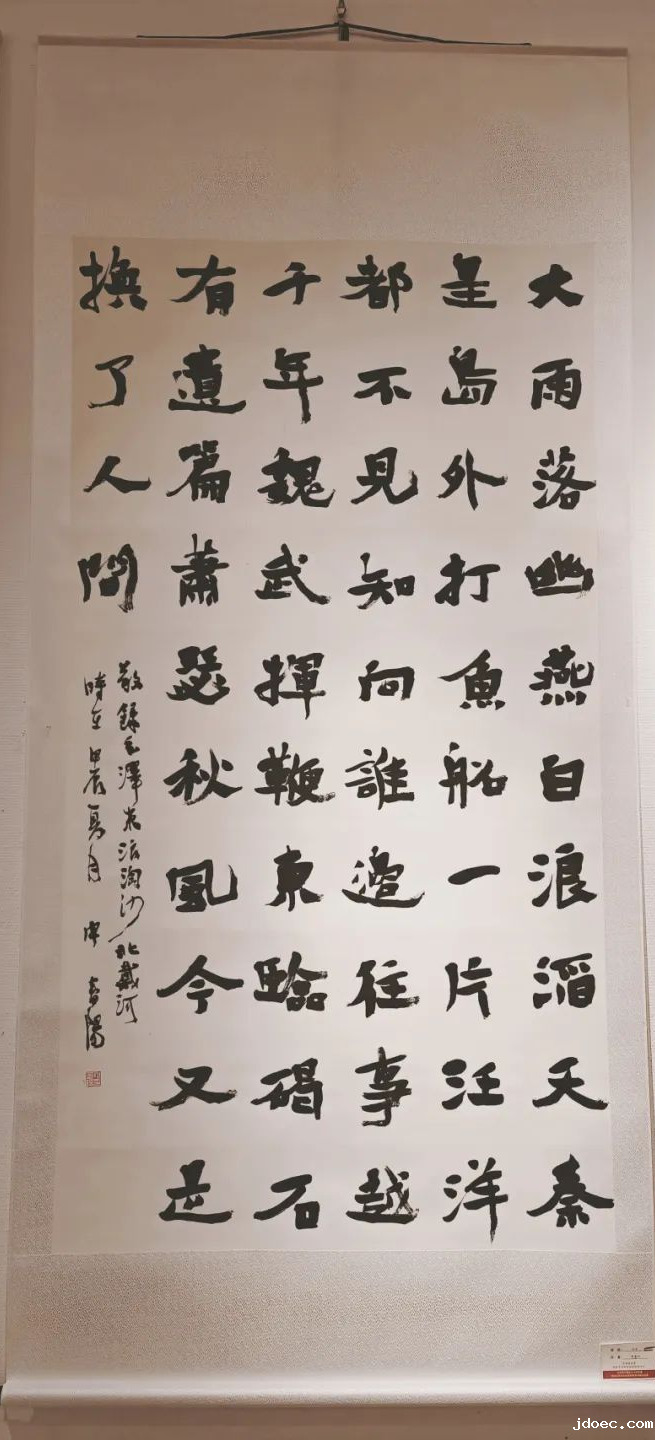 大雨落幽燕白浪滔天秦
皇島外打魚船一片汪洋
都不見知向誰邊往事越
千年魏武揮鞭東臨碣石
有遺篇蕭瑟秋風今又是
換了人間
敬錄毛澤東浪淘沙北戴河
時在甲辰夏月
jdoec.com